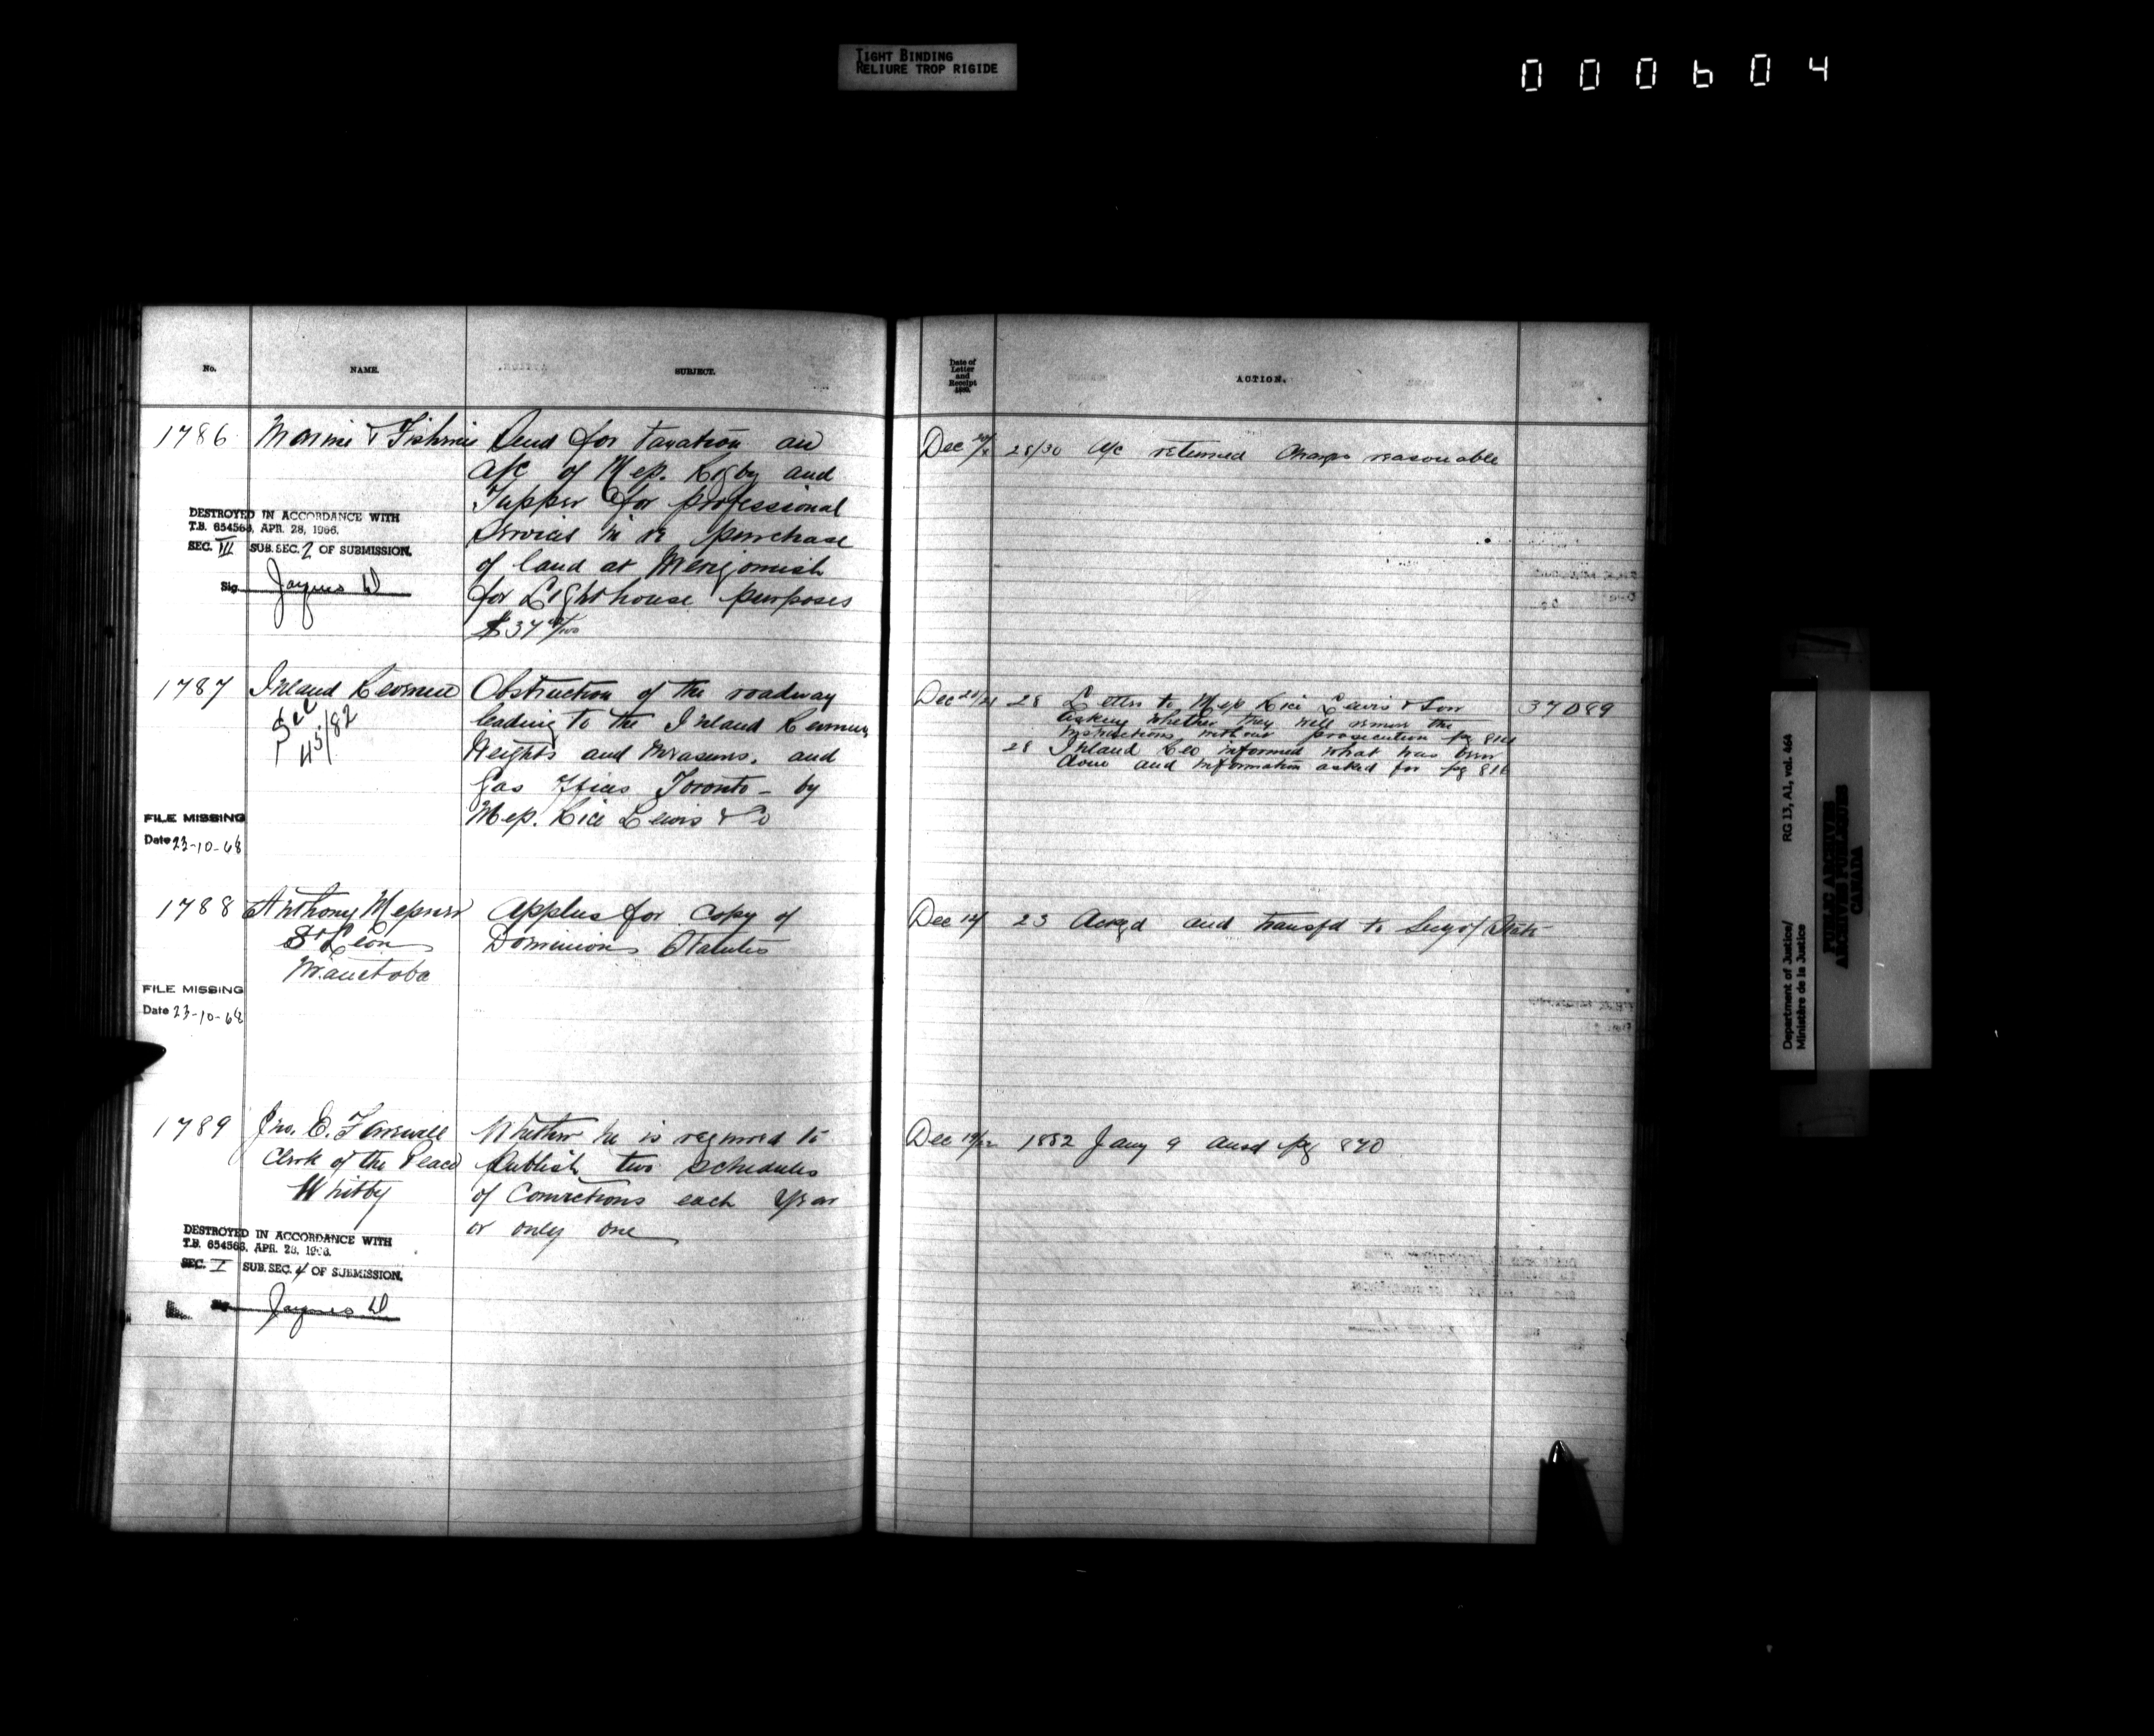 TIGHT BINDING
RELIURE TROP RIGIDE
000604
No.
NAME.
SUBJECT.
1786
Marine & Fisheries
Send for taxation an
a/c of Mess. Rigby and
Tupper for professional
services in re purchase
of land at Merigomish
for Lighthouse purposes
$37
DESTROYED IN ACCORDANCE WITH
T.B. 654563, APR. 28, 1966.
SEC. III SUB. SEC. 2 OF SUBMISSION.
Sig.
1787
Inland Revenue
See
45/82
Obstruction of the roadway
leading to the Inland Revenue,
Weights and Measures, and
Gas Offices Toronto - by
Mess. Rice Lewis & Co
FILE MISSING
Date 23-10-68
1788
Anthony Messner
St Leon
Manitoba
Applies for copy of
Dominion Statutes
FILE MISSING
Date 23-10-68
1789
Jno. E. Farewell
Clerk of the Peace
Whitby
Whether he is required to
publish two schedules
of Convictions each year
or only one
DESTROYED IN ACCORDANCE WITH
T.B. 654563, APR. 28, 1966.
SEC. I SUB. SEC. 4 OF SUBMISSION.
Sig.
Date of
Letter
and
Receipt
ACTION.
Dec 28/30 A/c returned Charges reasonable
Dec 28 Letter to Mess Rice Lewis & Son
asking whether they will remove the
obstructions without prosecution pg
28 Inland Rev informed what has been
done and information asked for pg
37089
Dec 23 Ackgd and transfd to Secy of State
Dec 1882 Jany 9 ansd pg 870
Department of Justice/
Ministère de la Justice
RG 13, A1, vol. 464
PUBLIC ARCHIVES
ARCHIVES PUBLIQUES
CANADA